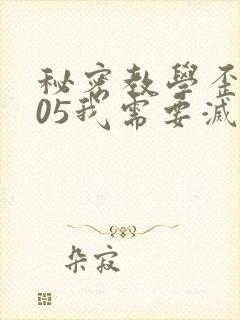 秘密教學歪
05我需要滅
朵寂